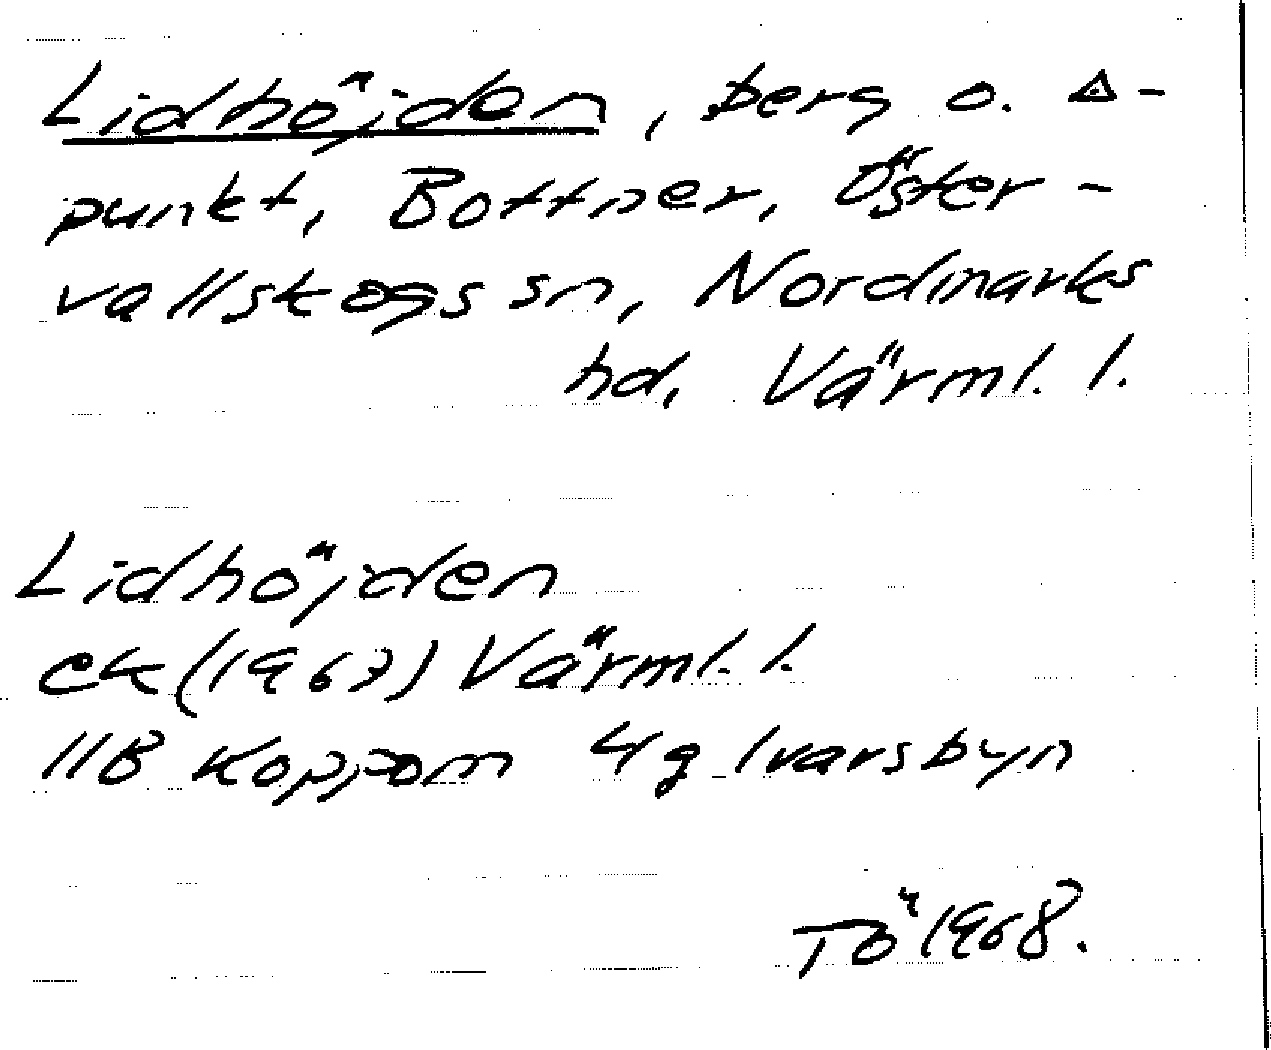 Lidhöjden, berg o. Δ-
punkt, Bottner, Öster-
vallskogs sn, Nordmarks
hd, Värml. l.
Lidhöjden
ek (1967) Värml. l.
11B Koppom 4g Ivarsbyn
TÖ 1968.